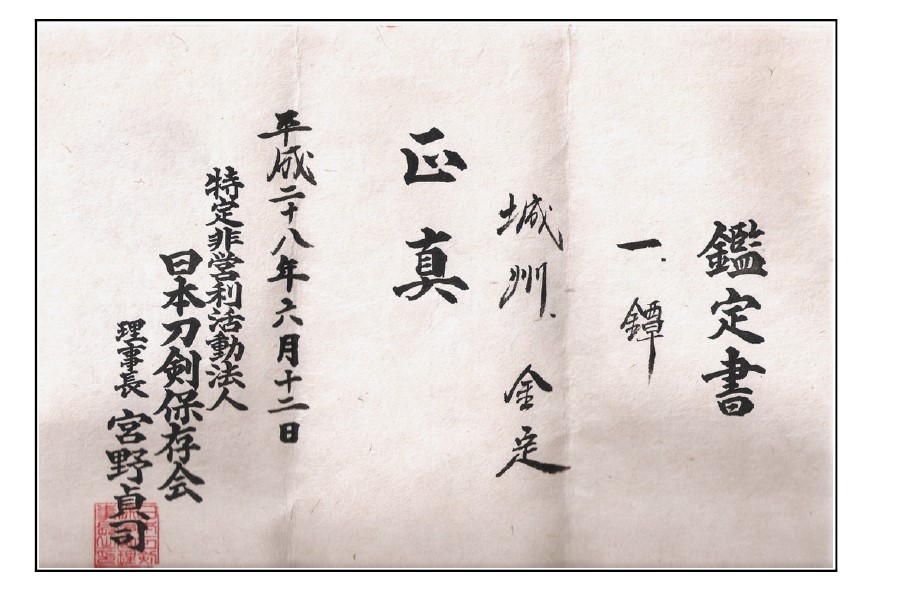 鑑定書
一、鐔
城州、金定
正真
平成二十八年六月十二日
特定非営利活動法人
日本刀剣保存会
理事長 宮野貞司